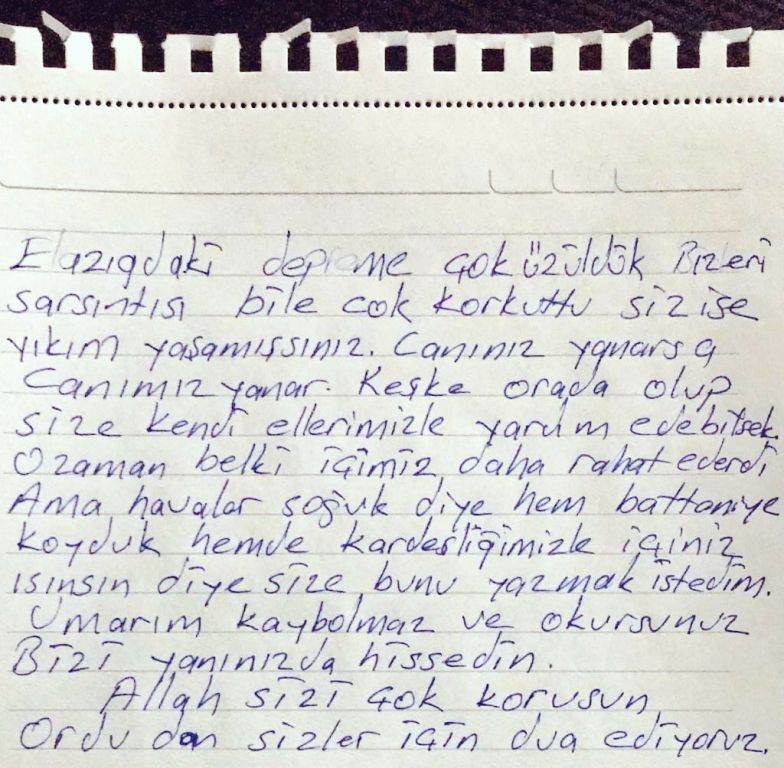 Elazıgdaki depreme çok üzüldük Bizleri
sarsıntısı bile cok korkuttu siz ise
yıkım yaşamışsınız. Canınız yanarsa
Canımız yanar. Keşke orada olup
size kendi ellerimizle yardım edebilsek.
Ozaman belki içimiz daha rahat ederdi
Ama havalar soğuk diye hem battaniye
koyduk hemde kardeşliğimizle içiniz
ısınsın diye size bunu yazmak istedim.
Umarım kaybolmaz ve okursunuz
Bizi yanınızda hissedin.
Allah sizi çok korusun
Ordu dan sizler için dua ediyoruz.